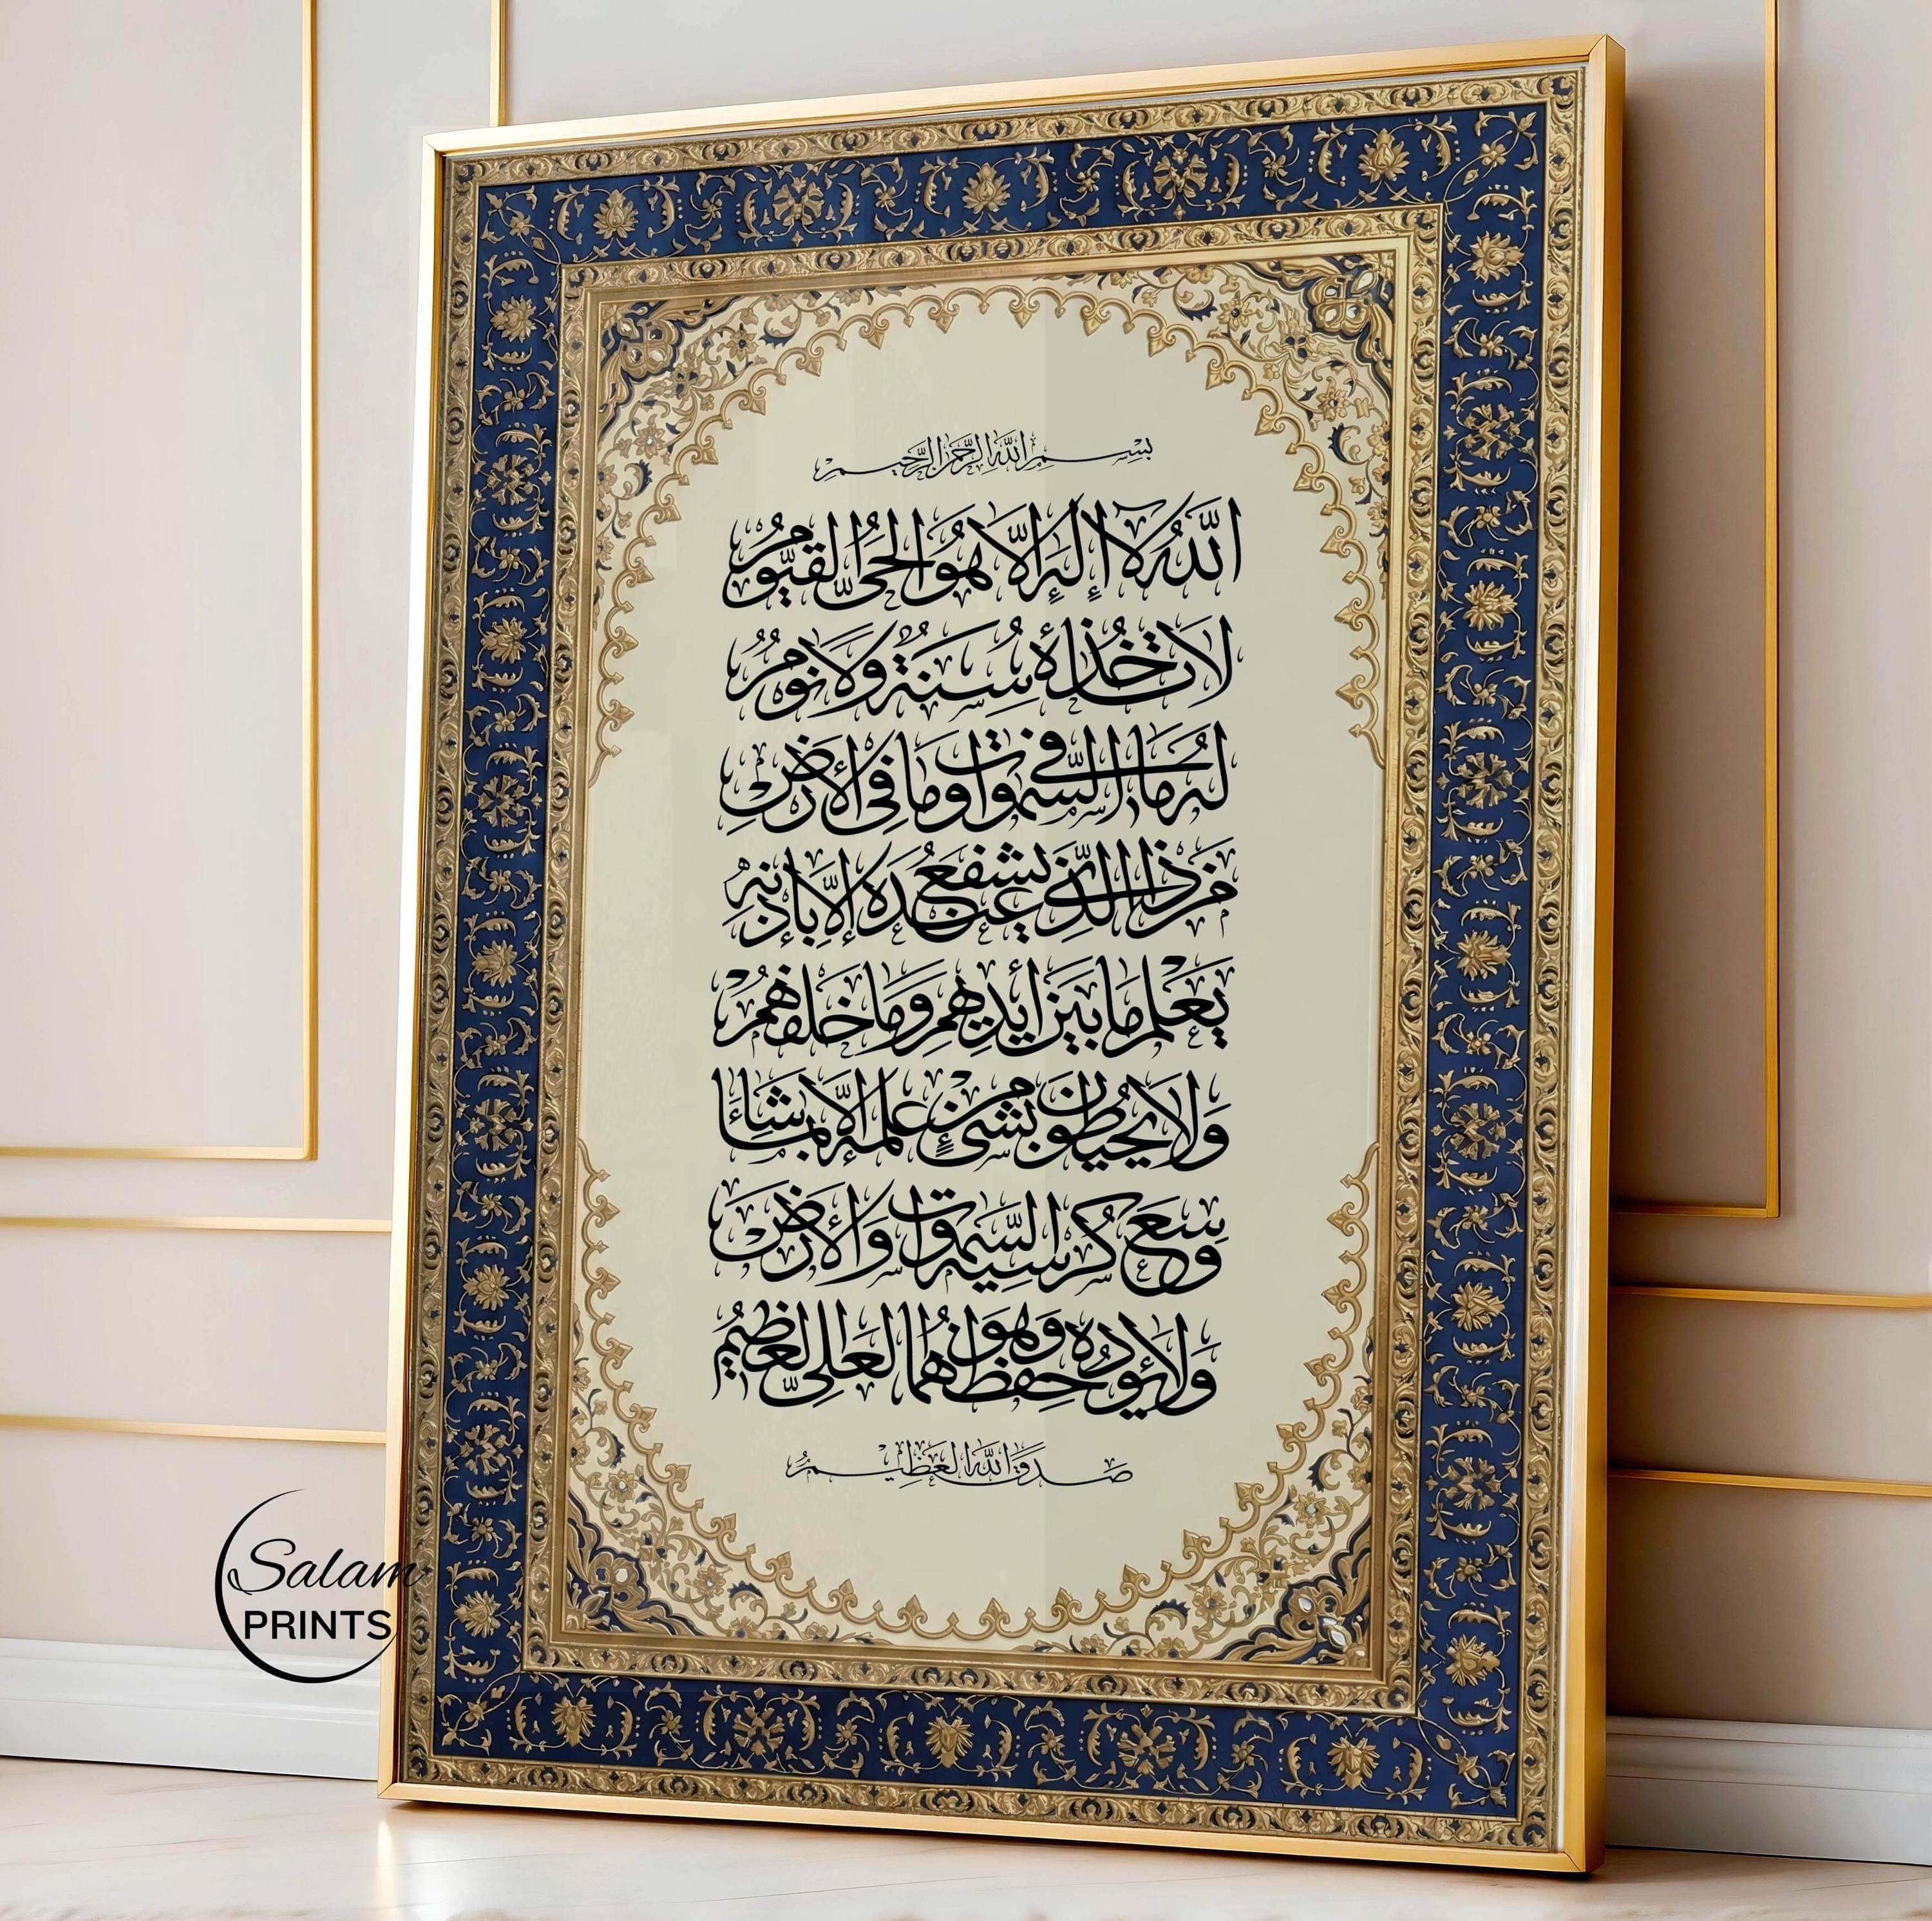 بسم الله الرحمن الرحيم
اللَّهُ لَا إِلَٰهَ إِلَّا هُوَ الْحَيُّ الْقَيُّومُ
لَا تَأْخُذُهُ سِنَةٌ وَلَا نَوْمٌ
لَهُ مَا فِي السَّمَٰوَاتِ وَمَا فِي الْأَرْضِ
مَنْ ذَا الَّذِي يَشْفَعُ عِنْدَهُ إِلَّا بِإِذْنِهِ
يَعْلَمُ مَا بَيْنَ أَيْدِيهِمْ وَمَا خَلْفَهُمْ
وَلَا يُحِيطُونَ بِشَيْءٍ مِنْ عِلْمِهِ إِلَّا بِمَا شَاءَ
وَسِعَ كُرْسِيُّهُ السَّمَٰوَاتِ وَالْأَرْضَ
وَلَا يَئُودُهُ حِفْظُهُمَا وَهُوَ الْعَلِيُّ الْعَظِيمُ
صدق الله العظيم
Salam
PRINTS